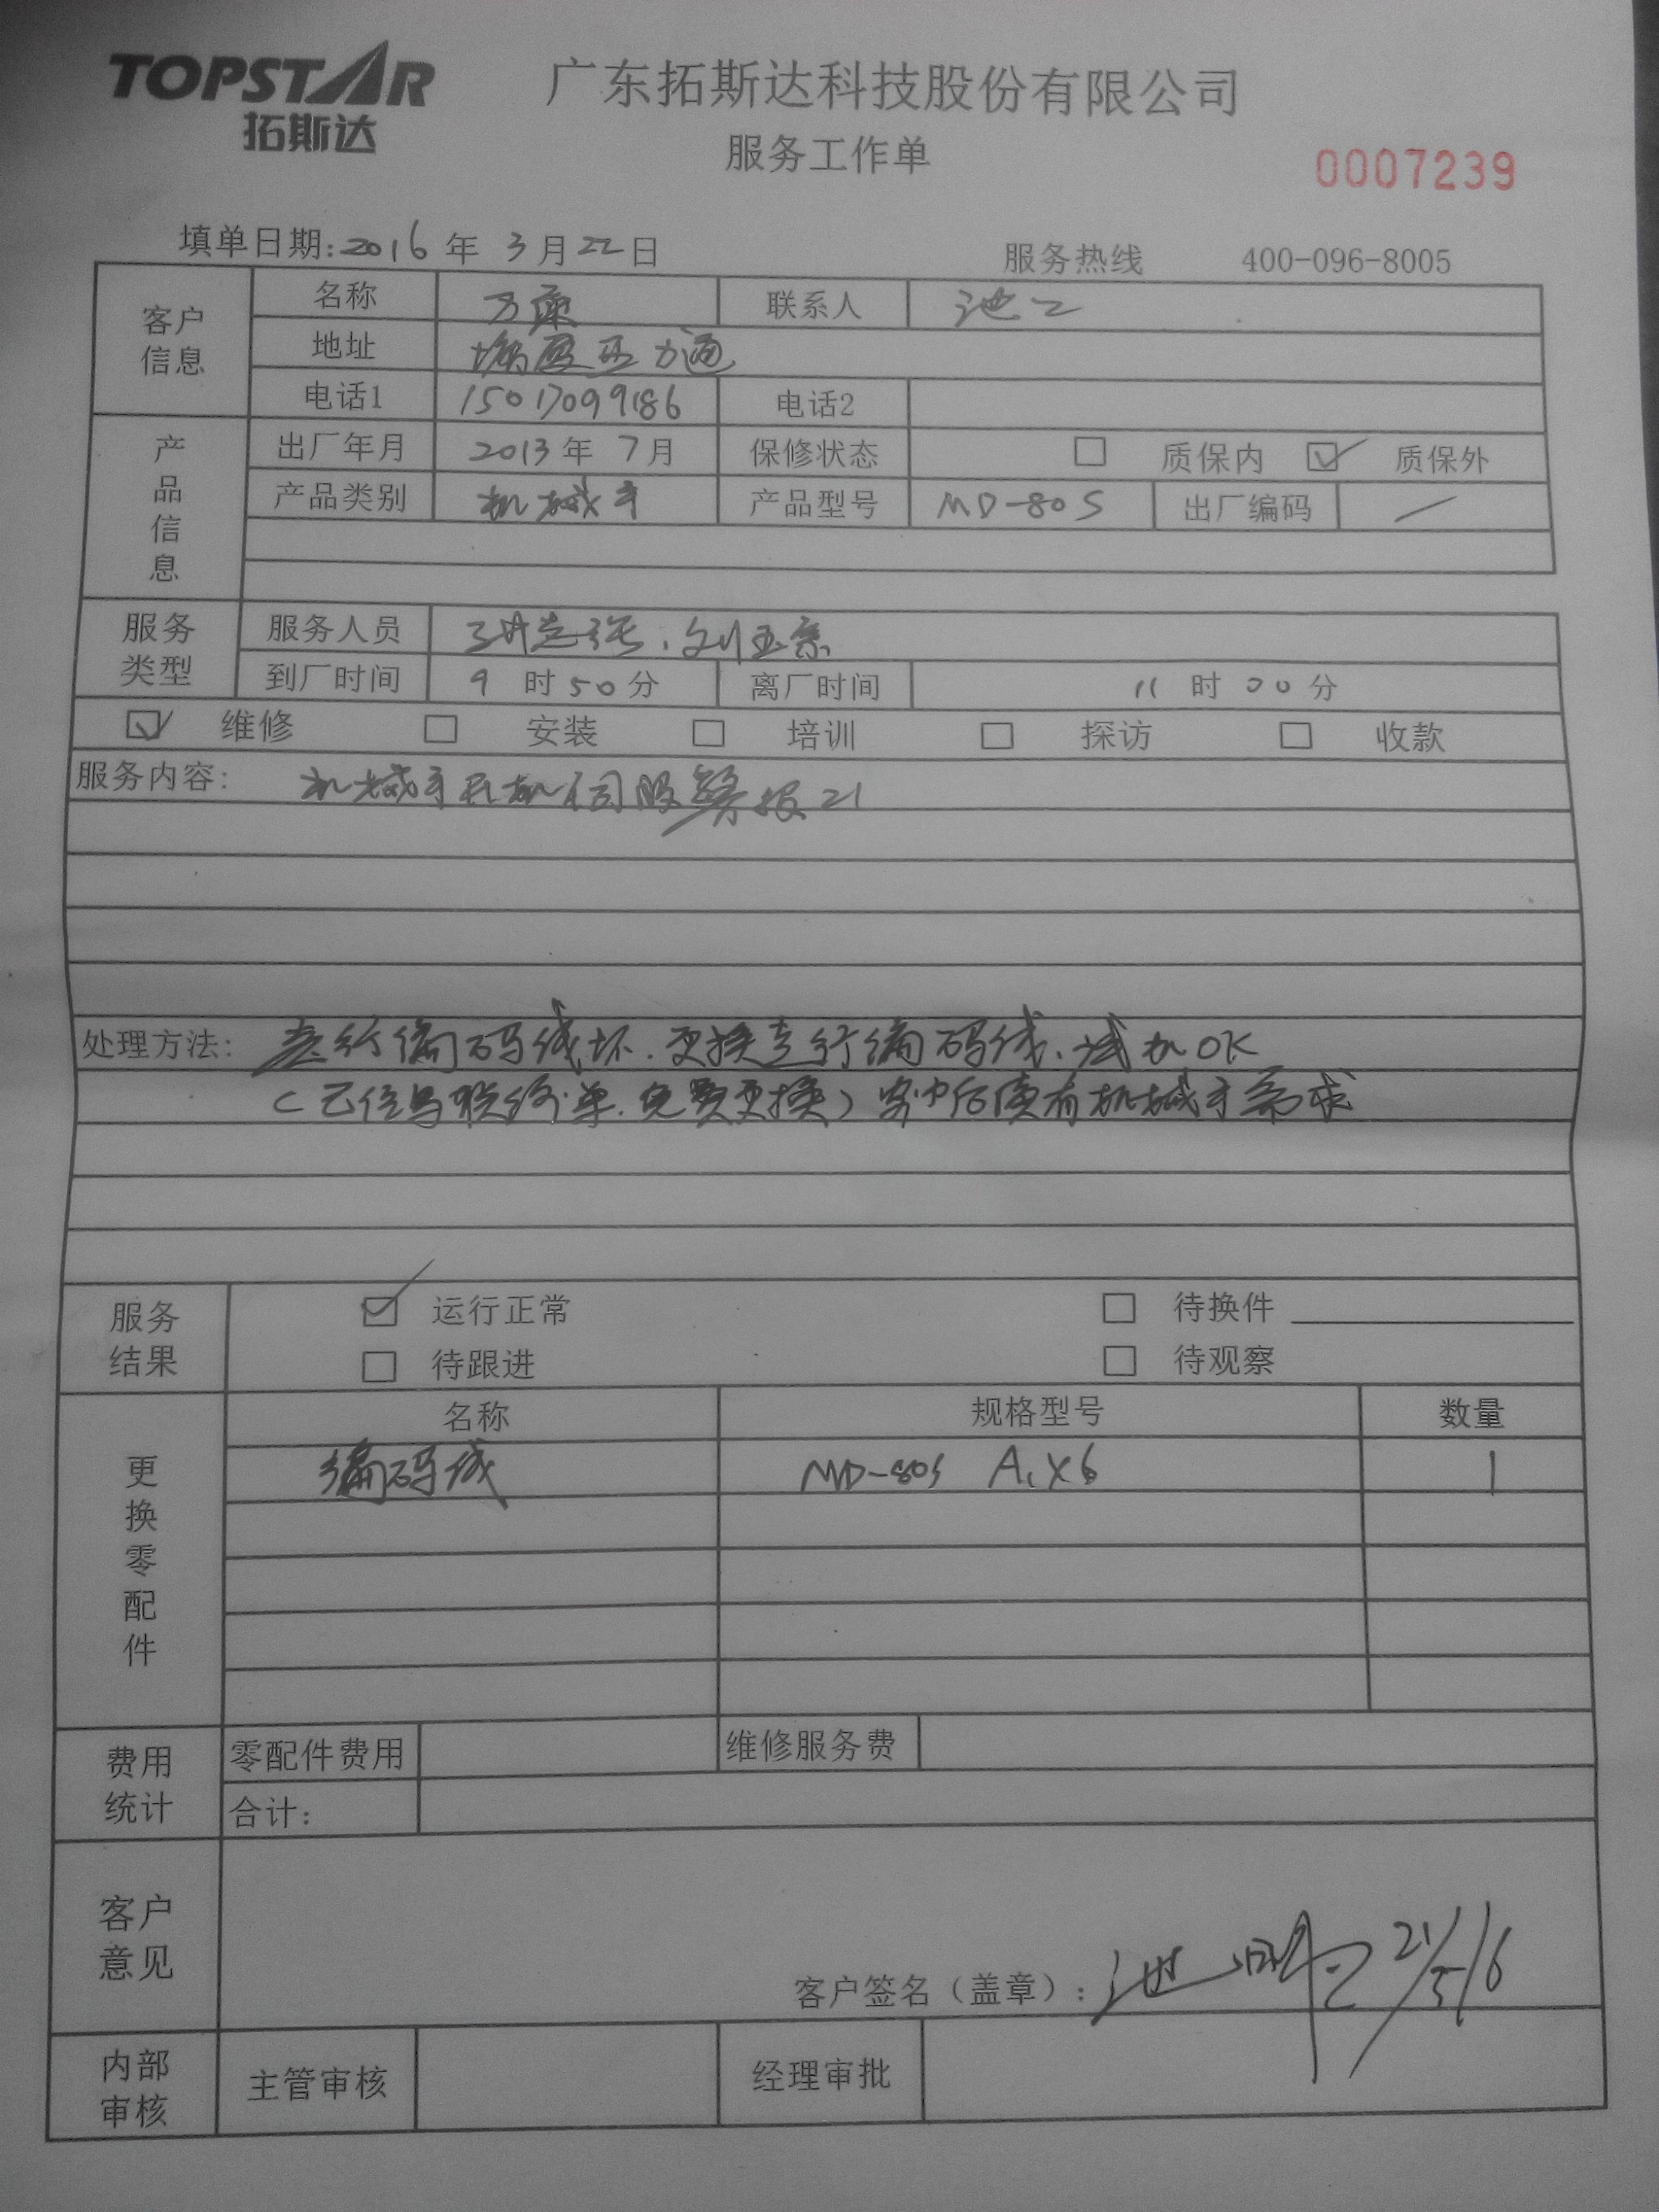 TOPSTAR
拓斯达
广东拓斯达科技股份有限公司
服务工作单
0007239
填单日期:2016年3月22日 服务热线 400-096-8005
客户信息
名称 万 联系人 池工
地址 塘厦
电话1 15017099186 电话2
产品信息
出厂年月 2013年7月 保修状态 □ 质保内 ☑ 质保外
产品类别 机械手 产品型号 MD-80S 出厂编码 /
服务类型
服务人员
到厂时间 9时50分 离厂时间 11时00分
☑ 维修 □ 安装 □ 培训 □ 探访 □ 收款
服务内容: 机械手开机伺服警报21
处理方法: 走行编码线坏.更换走行编码线.试机OK
(已 联络单.免费更换)客户后续有机械手需求
服务结果
☑ 运行正常 □ 待换件
□ 待跟进 □ 待观察
更换零配件
名称 规格型号 数量
编码线 MD-80S 1
费用统计
零配件费用 维修服务费
合计:
客户意见
客户签名(盖章): 池
内部审核
主管审核 经理审批